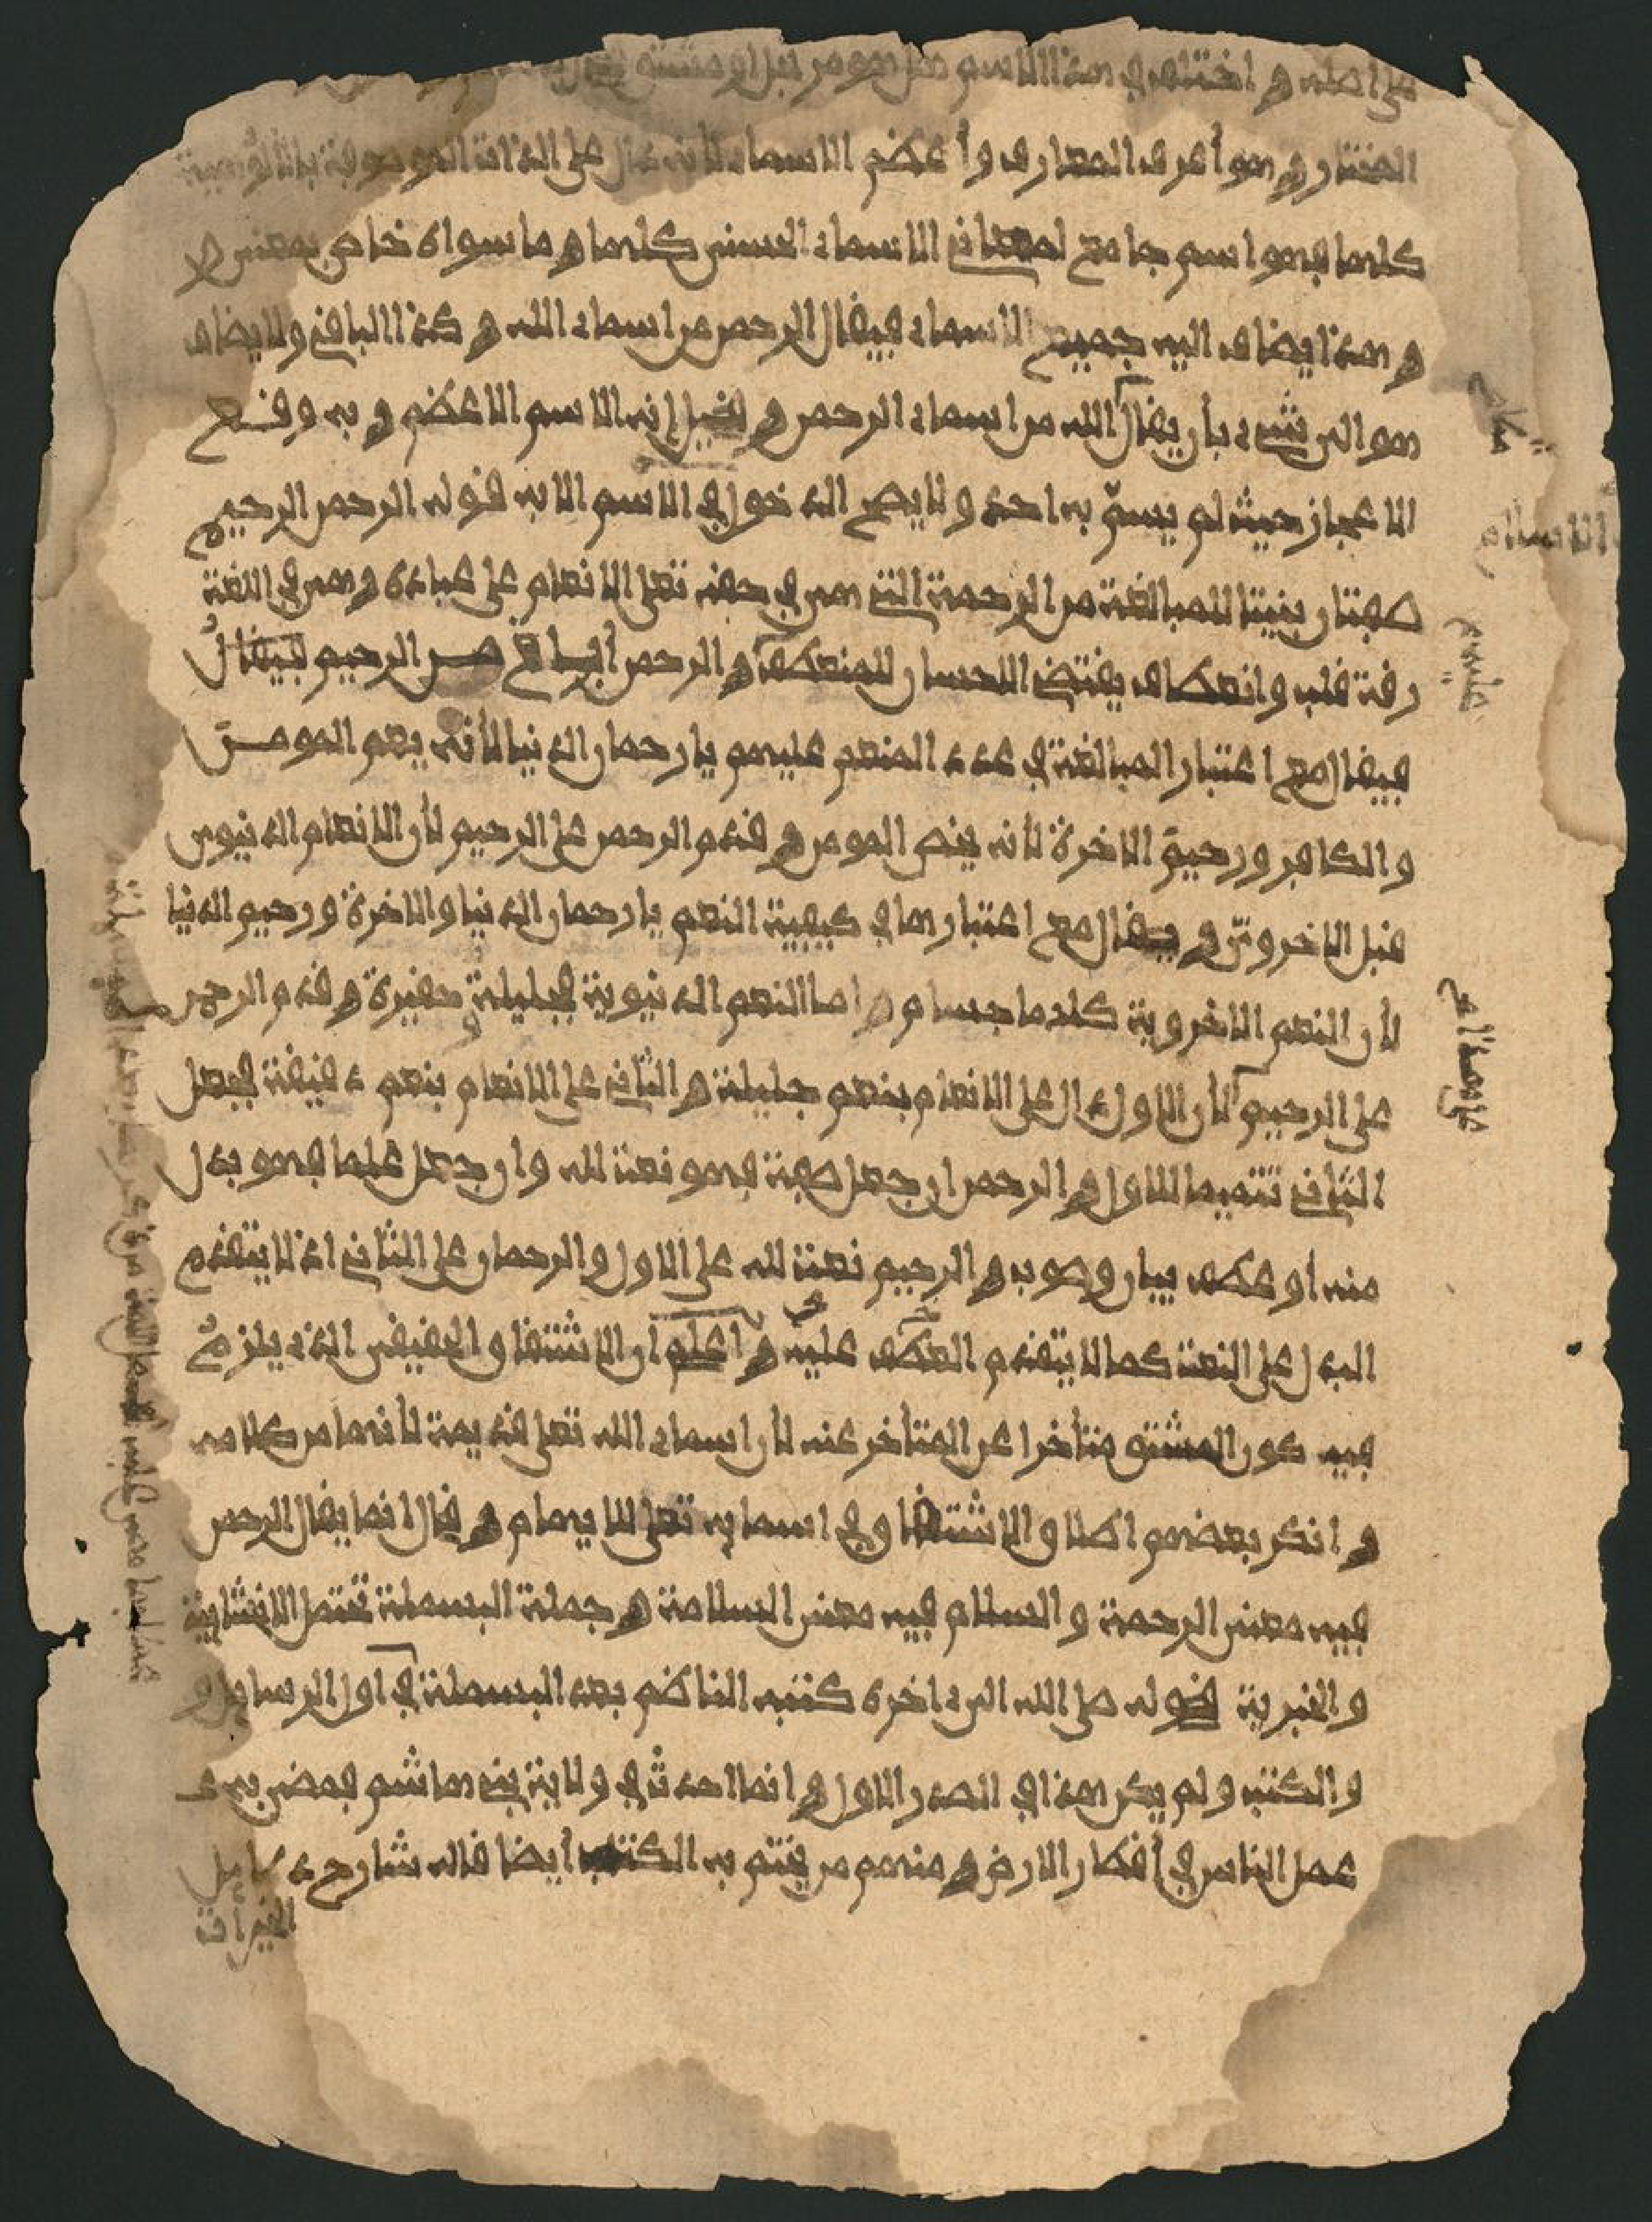 على اصله و اختلف في هذا الاسم هل هو مرتجل او مشتق
المختار و هو أعرف المعارف و أعظم الاسماء لأنه دال على الذات الموصوفة بالألوهية
كلها فهو اسم جامع لمعاني الاسماء الحسنى كلها و ما سواه خاص بمعنى و
و هذا يضاف اليه جميع الاسماء فيقال الرحمن من اسماء الله و كذا الباقي و لا يضاف
هو الى شيء بأن يقال الله من اسماء الرحمن و لفيل إنه الاسم الاعظم و به وقع
الاعجاز حيث لم يسمّ به احد و لا يصح الدخول في الاسلام الا به قوله الرحمن الرحيم
صفتان بنيتا للمبالغة من الرحمة التي هي في حقه تعلى الانعام على عباده و هي في اللغة
رقة قلب و انعطاف يقتضي الاحسان للمنعطف و الرحمن أبلغ من الرحيم فيقال
فيقال مع اعتبار المبالغة في عدد المنعم عليهم يا رحمان الدنيا لأنه يعم المومن
و الكافر و رحيم الاخرة لأنه يخص المومن و قدم الرحمن على الرحيم لأن الانعام الدنيوي
قبل الاخروي و يقال مع اعتبارها في كيفية النعم يا رحمان الدنيا و الاخرة و رحيم الدنيا
لأن النعم الاخروية كلها جسام و اما النعم الدنيوية فجليلة و حقيرة و قدم الرحمن
على الرحيم لأن الاول دال على الانعام بنعم جليلة و الثاني على الانعام بنعم دقيقة فجعل
الثاني تتميما للاول و الرحمن ان جعل صفة فهو نعت لله و ان جعل علما فهو بدل
منه أو عطف بيان و صوب و الرحيم نعت لله على الاول و الرحمان على الثاني اذ لا يتقدم
البدل على النعت كما لا يتقدم العطف عليه و اعلم ان الاشتقاق الحقيقي الذي يلزم
فيه كون المشتق متأخرا عن المتأخر عنه لأن اسماء الله تعلى قديمة لأنها من كلامه
و انكر بعضهم اطلاق الاشتقاق في اسمايه تعلى للايهام و قال انما يقال الرحمن
فيه معنى الرحمة و السلام فيه معنى السلامة و جملة البسملة تحتمل الانشاية
و الخبرية قوله صلى الله الى اخره كتبه الناظم بعد البسملة في اول الرسايل و
و الكتب و لم يكن هذا في الصدر الاول و انما احدث في ولاية بني هاشم فمضى به
عمل الناس في أقطار الارض و منهم من يختم به الكتب أيضا قاله شارح دلايل
الخيرات